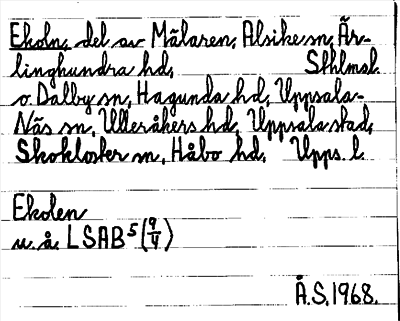 Ekoln, del av Mälaren, Alsike sn, Är-
linghundra hd, Sthlmsl.
o. Dalby sn, Hagunda hd, Uppsala-
Näs sn, Ulleråkers hd, Uppsala stad,
Skokloster sn, Håbo hd, Upps. l.
Ekolen
u. å. LSAB 5 (9/4)
Å.S. 1968.